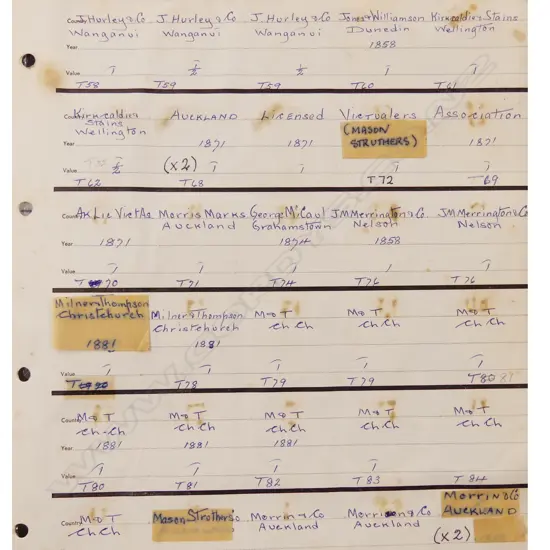 J. Hurley & Co J. Hurley & Co J. Hurley & Co Jones & Williamson Kirkcaldie & Stains
Country Wanganui Wanganui Wanganui Dunedin Wellington
Year 1858
Value 1 1/2 1/2 1 1
T58 T59 T59 T60 T61
Country Kirkcaldie & AUCKLAND LICENSED VICTUALERS ASSOCIATION
Stains (MASON
Wellington STRUTHERS)
Year 1871 1871 1871
Value 1/2 (x2) 1 1 1 1
T62 T68 T72 T69
Country Ak Lic Vict As Morris Marks George McCaul JM Merrington & Co. JM Merrington & Co
Auckland Grahamstown Nelson Nelson
Year 1871 1874 1858
Value 1 1 1 1 1
T70 T71 T74 T76 T76
Milner & Thompson Milner & Thompson M & T M & T M & T
Christchurch Christchurch Ch Ch Ch Ch Ch Ch
1881 1881
Value 1 1 1 1 1
T78 T79 T79 T80
Country M & T M & T M & T M & T M & T
Ch-Ch Ch Ch Ch Ch Ch Ch Ch Ch
Year 1881 1881 1881
Value 1 1 1 1 1
T80 T81 T82 T83 T84
Country M & T Mason Struthers Morrin & Co Morrin & Co MORRIN & Co
Ch Ch Auckland Auckland AUCKLAND
(x2)